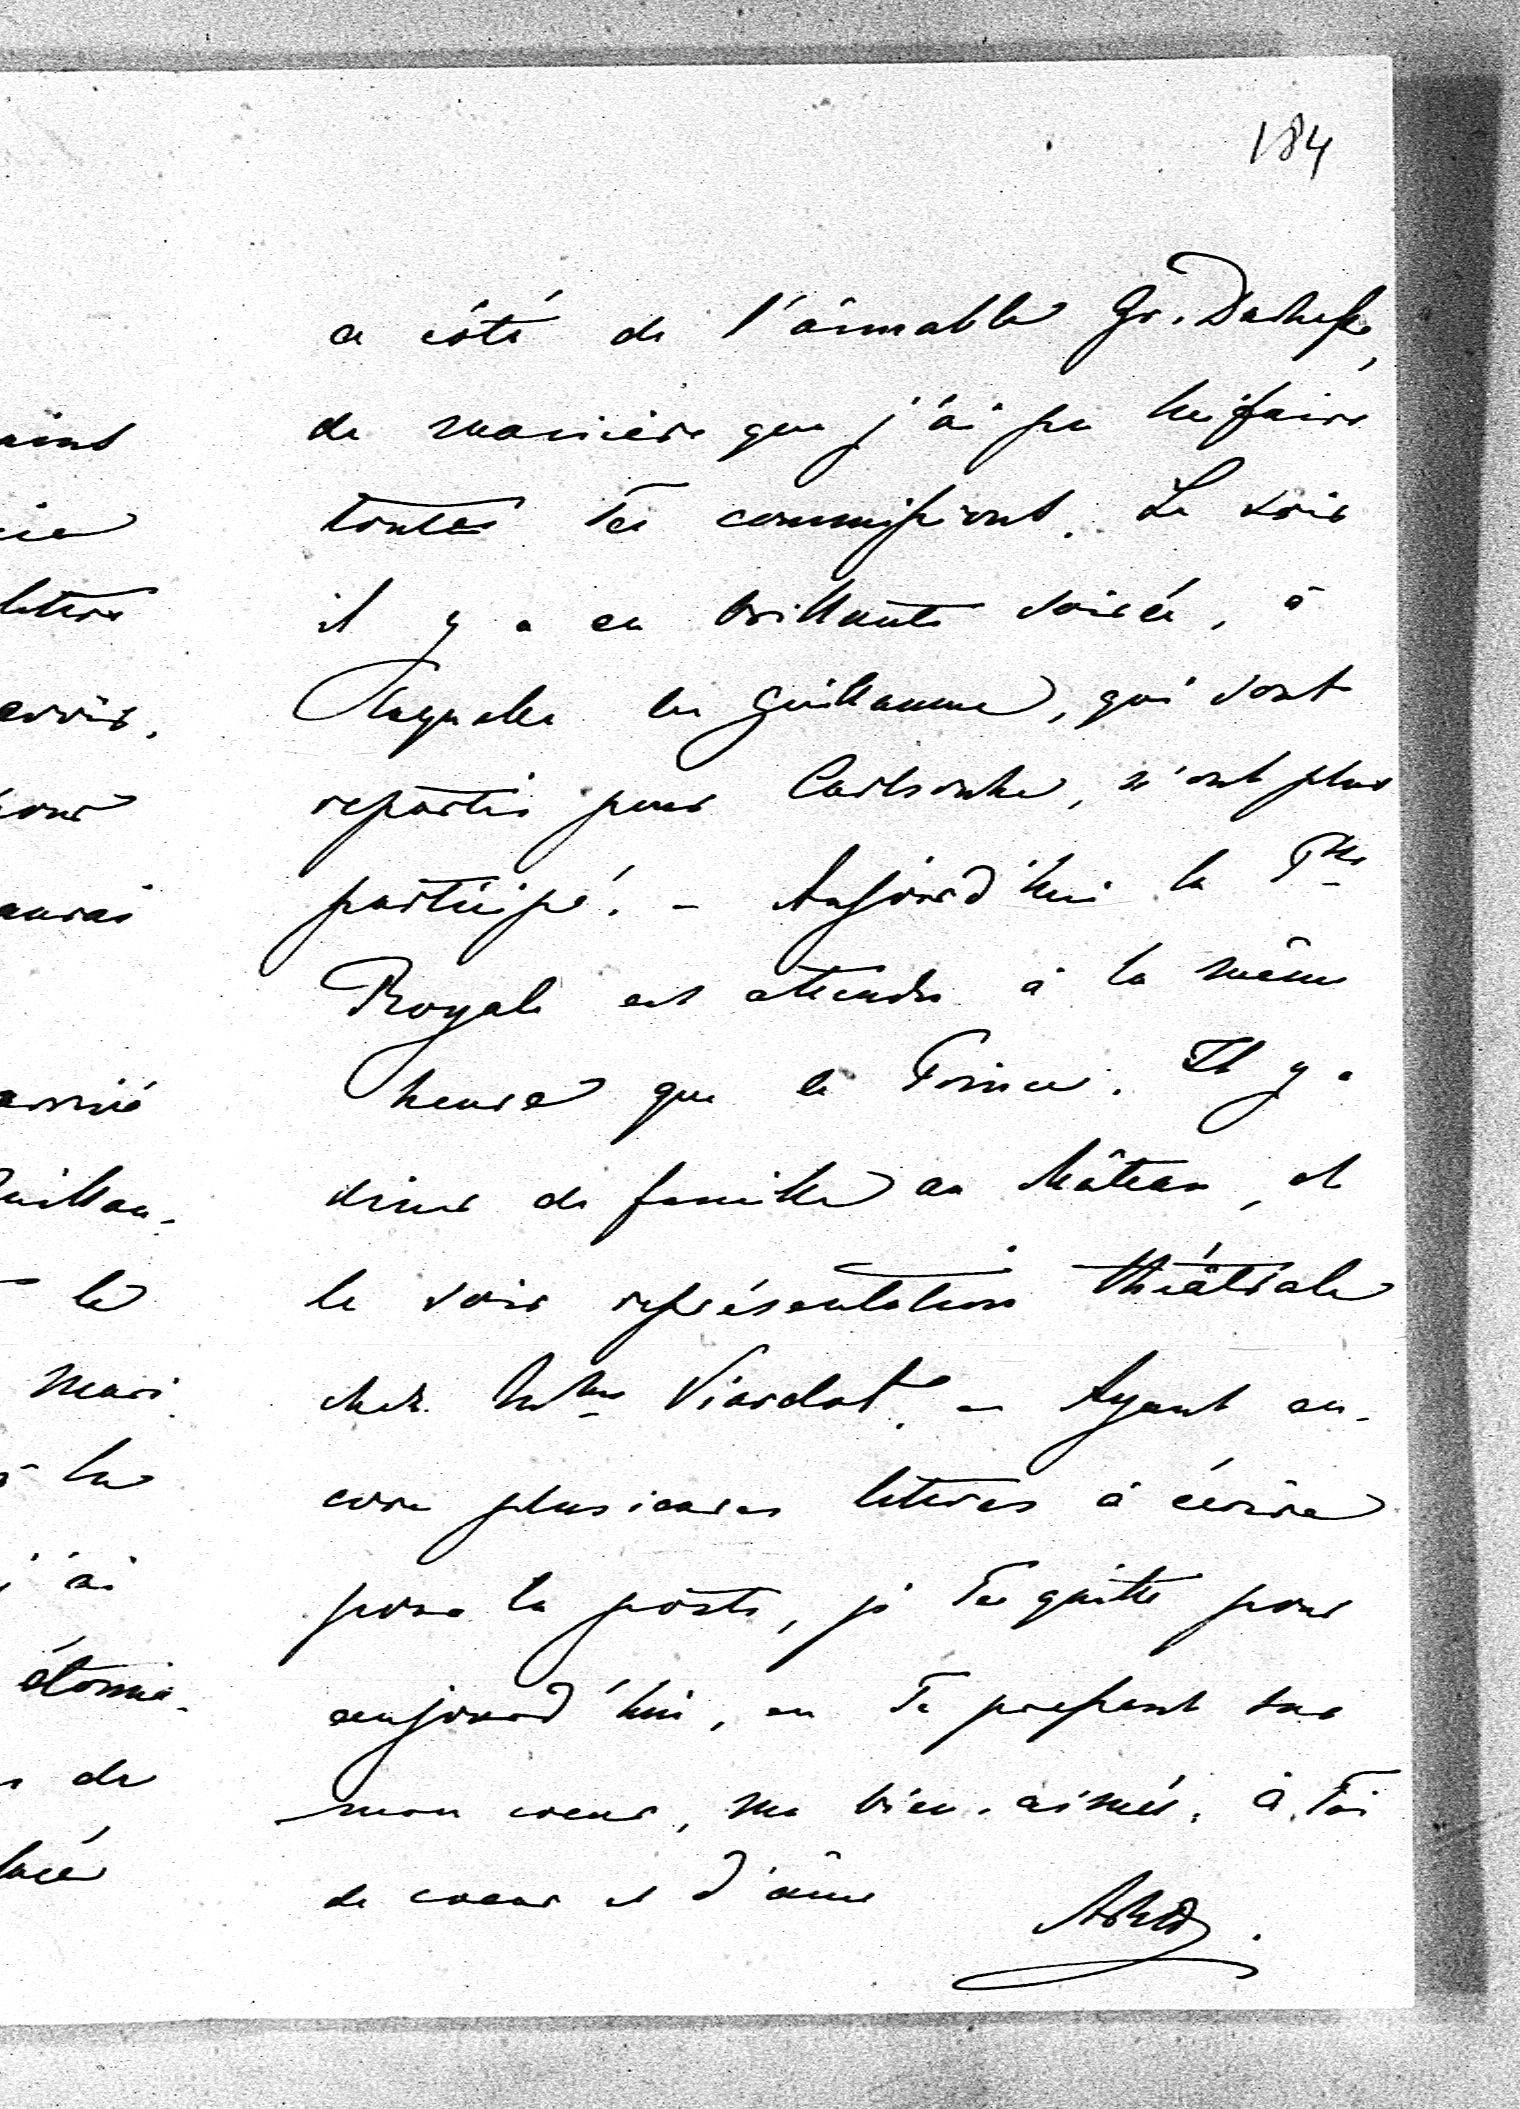 184
a côté de l'aimable Gr. Duchesse,
de manière que j'ai pu lui faire
toutes Tes commissions. Le soir
il y a eu brillante soirée, à
laquelle les Guillaume, qui sont
repartis pour Carlsruhe, n'ont plus
participé. – Aujourd'hui la Psse
Royale est attendue à la même
heure que le Prince. Il y a
diner de famille au château, et
le soir représentation théâtrale
chez Mme Viardot. – Ayant en-
core plusieures lettres à écrire
pour la poste, je Te quitte pour
aujourd'hui, en Te pressant sur
mon coeur, ma bien-aimée. à Toi
de coeur et d'âme
aint
cie
lettre
pour
aurai
arrivé
Guillau-
le
mari
la
j'ai
étonné-
de